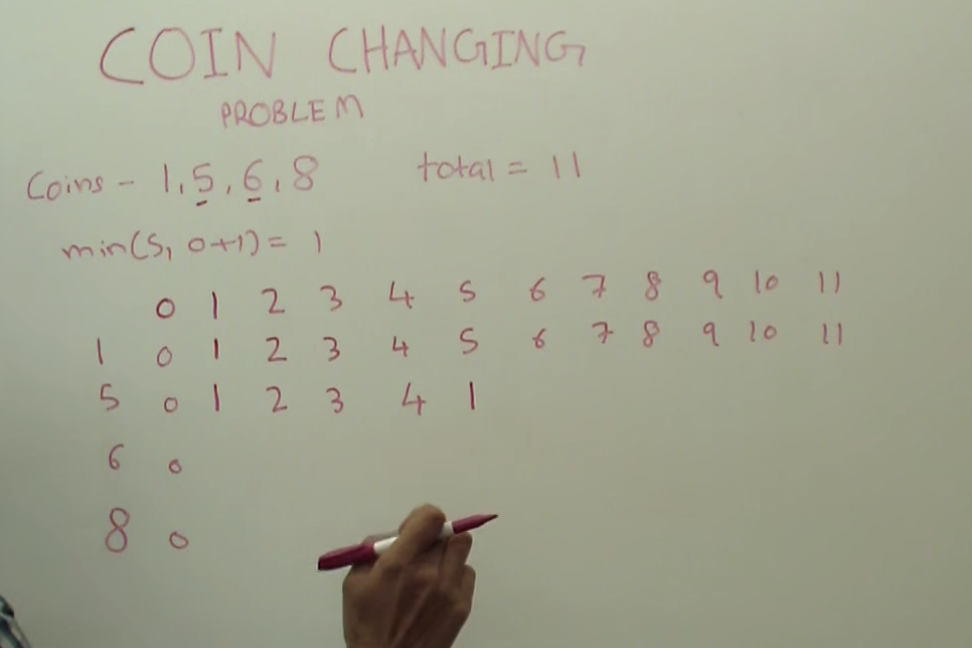 COIN CHANGING
PROBLEM
Coins - 1, 5, 6, 8 total = 11
min(5, 0+1) = 1
0 1 2 3 4 5 6 7 8 9 10 11
1 0 1 2 3 4 5 6 7 8 9 10 11
5 0 1 2 3 4 1
6 0
8 0